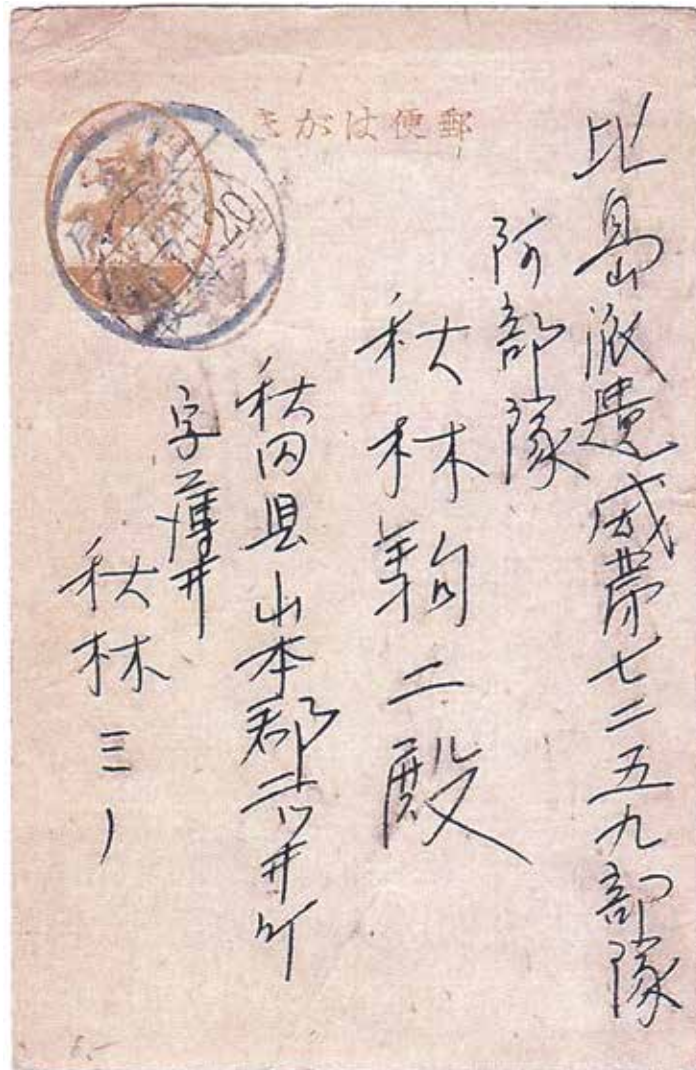 郵便はがき
比島派遣威第七二五九部隊
阿部隊
秋林駒二殿
秋田県山本郡二ツ井町
字薄井
秋林三ノ
20